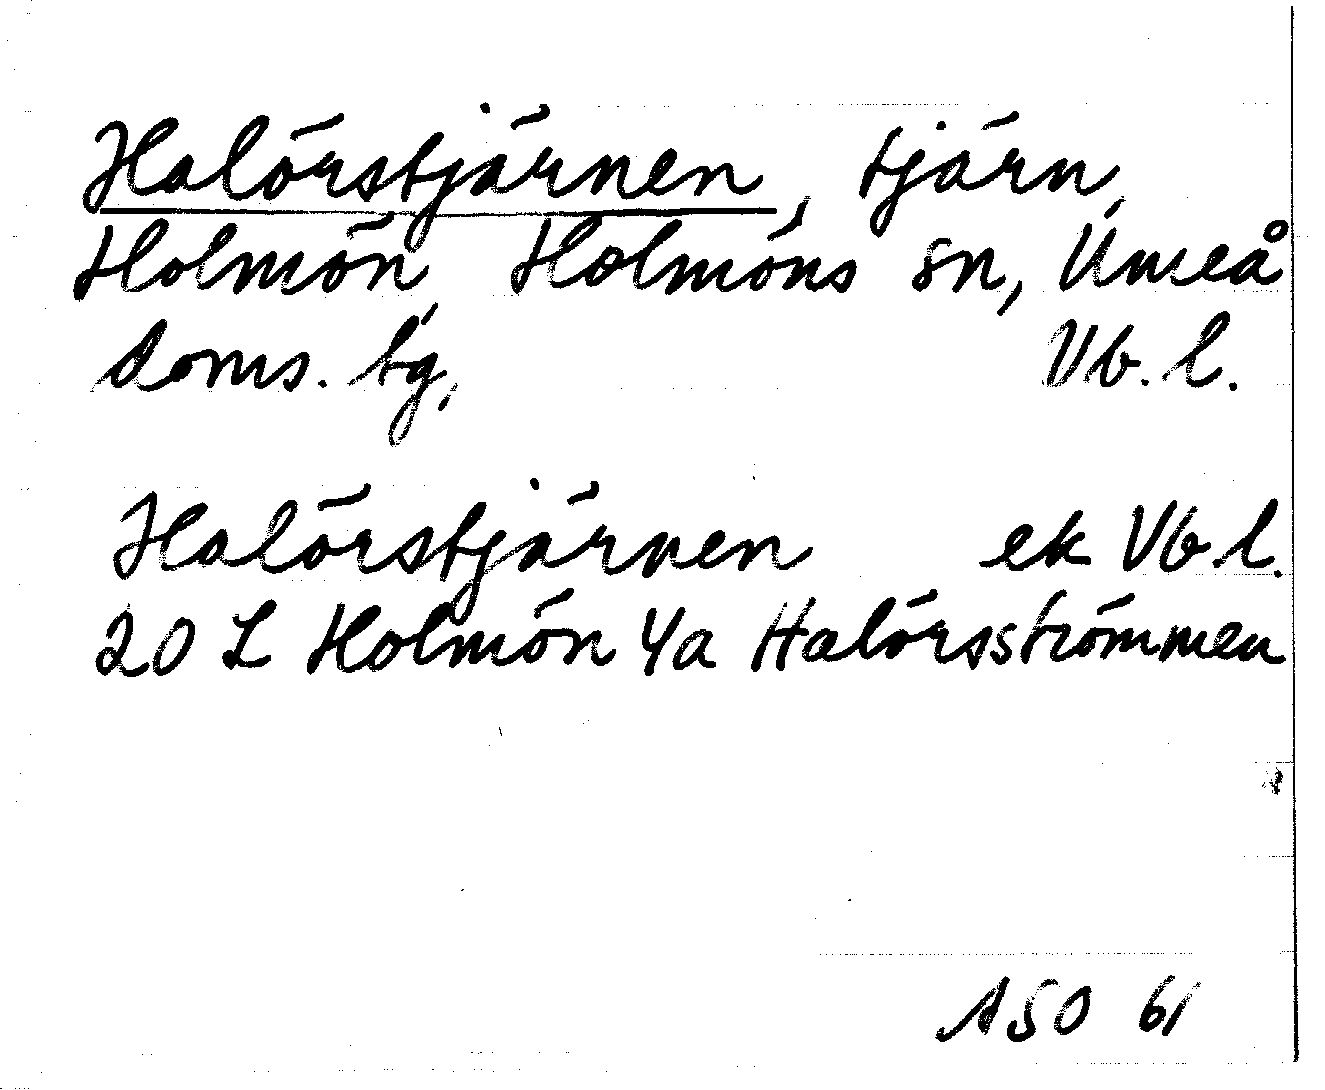 Halörstjärnen, tjärn,
Holmön, Holmöns sn, Umeå
doms. tg, Vb. l.
Halörstjärnen ek Vb. l.
20 L Holmön 4a Halörsströmmen
ASO 61